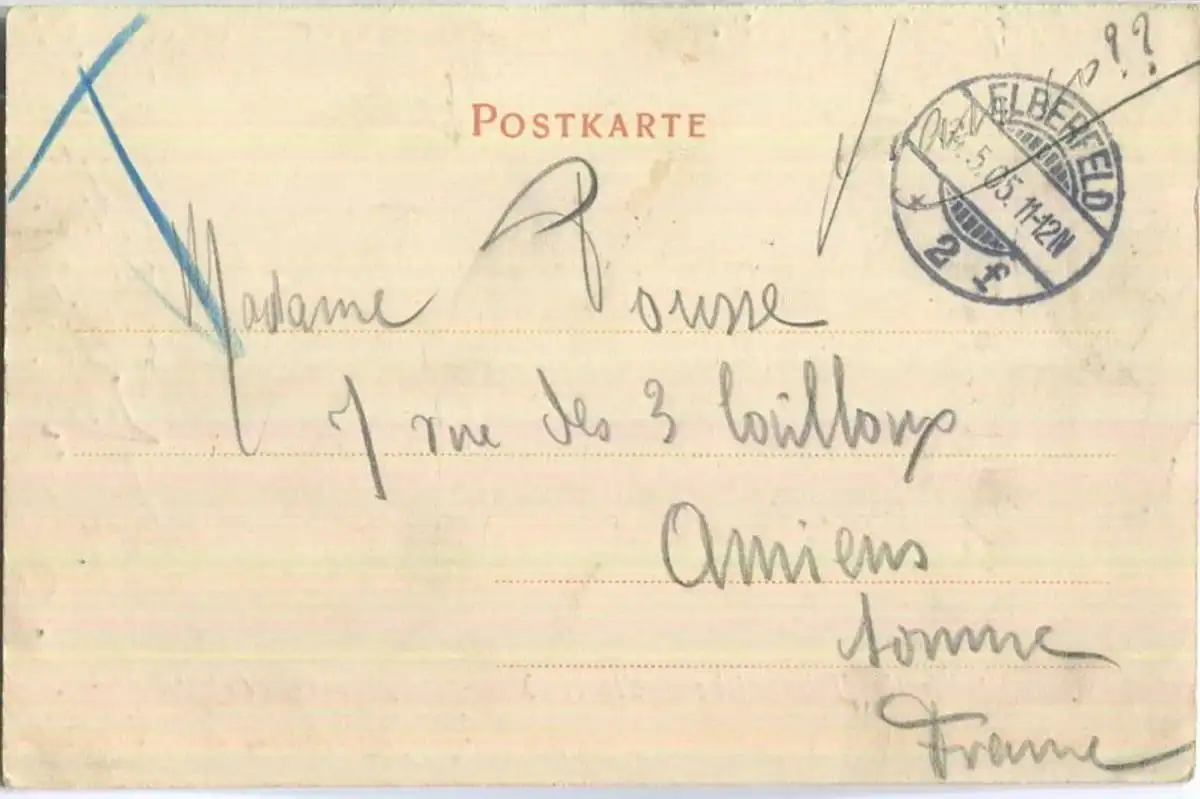 POSTKARTE
ELBERFELD
5.05.11-12N
* 2 f
??
Madame Pousse
7 rue des 3 Cailloux
Amiens
Somme
France